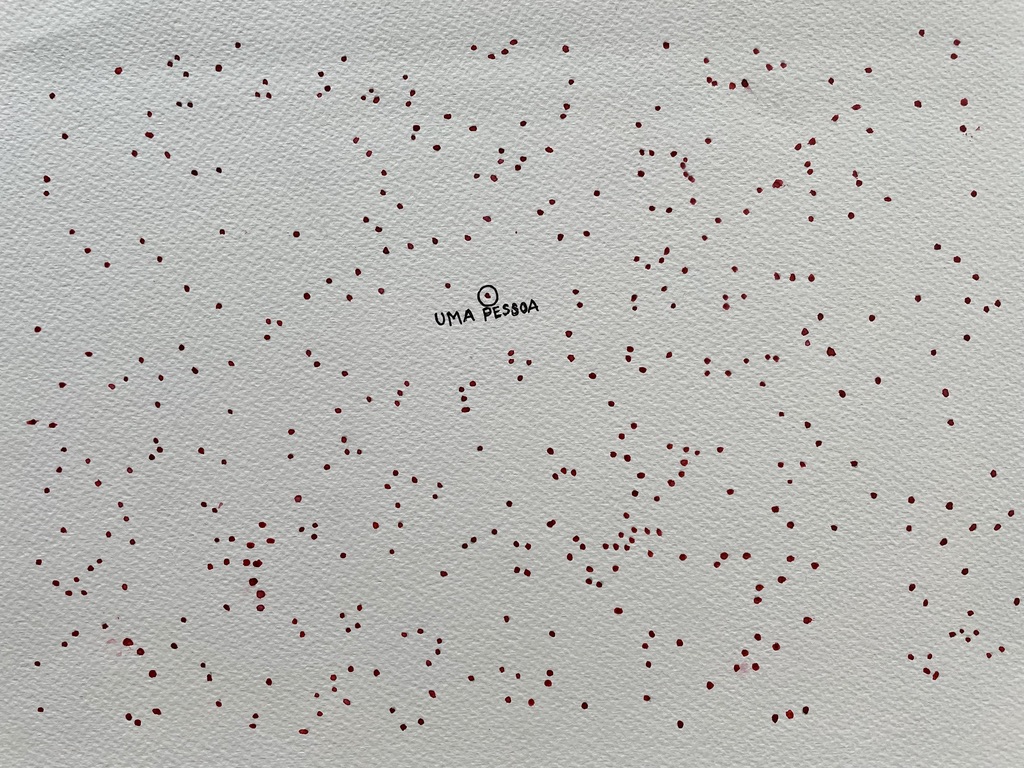 UMA PESSOA